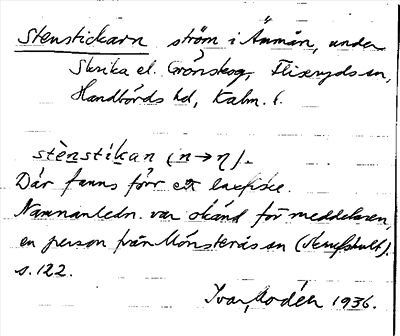 Stenstickarn ström i Ämmån, under
Skrika el. Grönskog, Fliseryds sn,
Handbörds hd, Kalm. l.
stènstíkan (n→η).
Där fanns förr ett laxfiske.
Namnanledn. var okänd för meddelaren,
en person från Mönsterås sn
s. 122.
Ivar Modéer 1936.